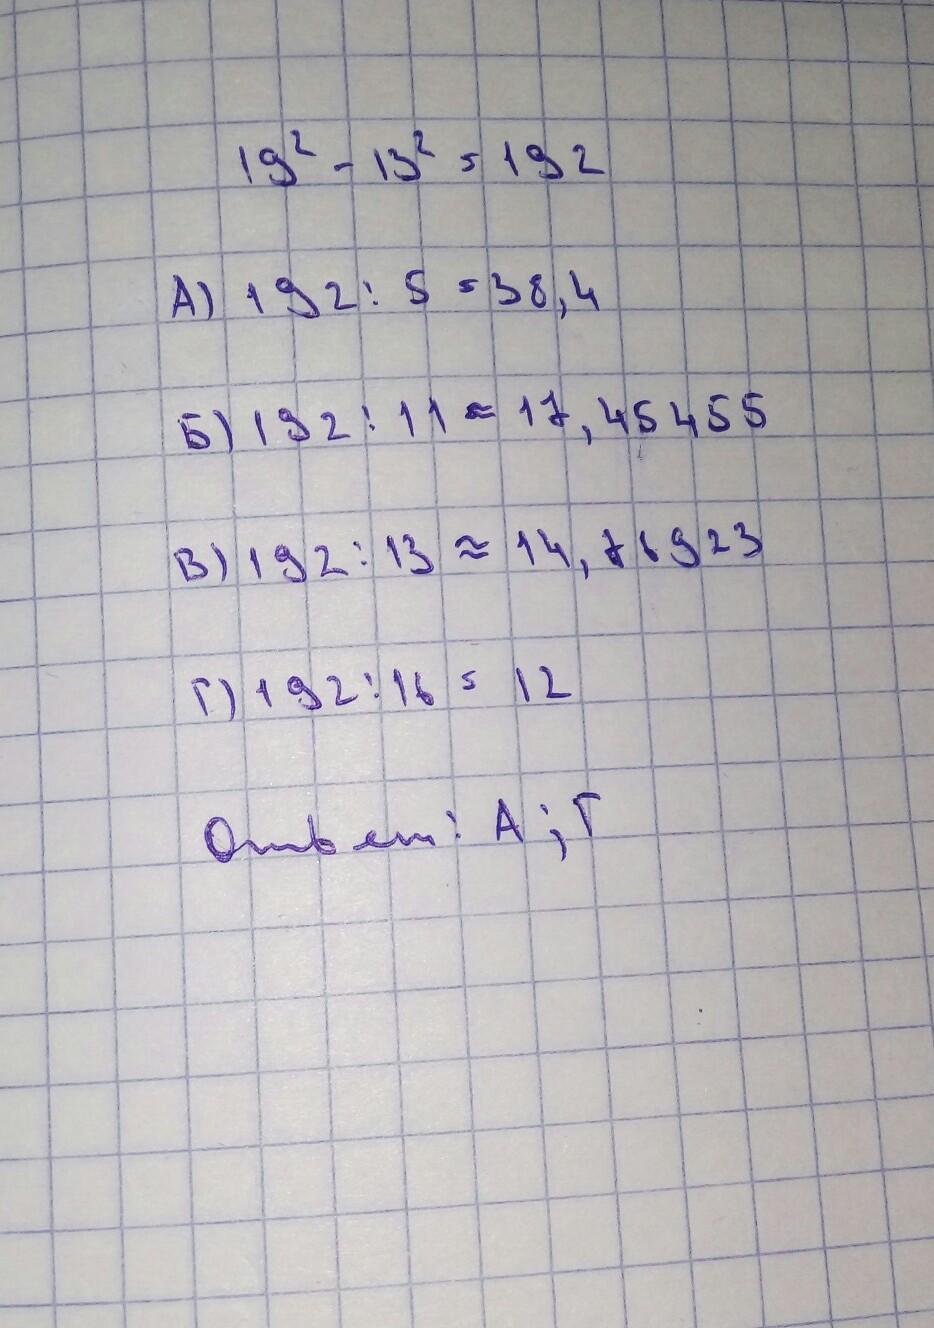 19² - 13² = 192
А) 192 : 5 = 38,4
Б) 192 : 11 ≈ 17,45455
В) 192 : 13 ≈ 14,76923
Г) 192 : 16 = 12
Ответ: А ; Г